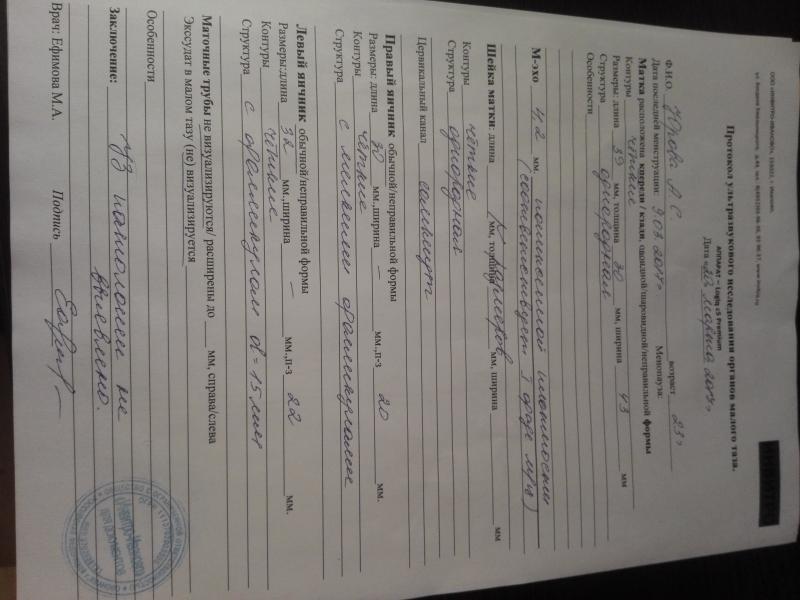 ООО «ИНВИТРО-ИВАНОВО», 153022, г. Иваново,
ул. Богдана Хмельницкого,
Протокол ультразвукового исследования органов малого таза.
АППАРАТ – Logiq s5 Premium
Дата марта
Ф.И.О. А С возраст 23
Дата последней менструации: 9.03. Менопауза:
Матка расположена кпереди / кзади, овоидной/шаровидной/неправильной формы
Контуры чёткие
Размеры: длина 39 мм, толщина 30 мм, ширина 43 мм
Структура однородная
Особенности
М-эхо 4,2 мм. пониженной плотности
(соответствует I фазе мца)
Шейка матки: длина мм, толщина мм, ширина мм
размеров
Контуры чёткие
Структура однородная
Цервикальный канал сомкнут
Правый яичник обычной/неправильной формы
Размеры: длина 30 мм.,ширина – мм.,п-з 20 мм.
Контуры чёткие
Структура с мелкими фолликулами
Левый яичник обычной/неправильной формы
Размеры:длина 32 мм.,ширина – мм.,п-з 22 мм.
Контуры чёткие
Структура с фолликулом d=15 мм
Маточные трубы не визуализируются/ расширены до мм, справа/слева
Экссудат в малом тазу (не) визуализируется
Особенности
Заключение: УЗ патологии не
выявлено.
Врач: Ефимова М.А. Подпись